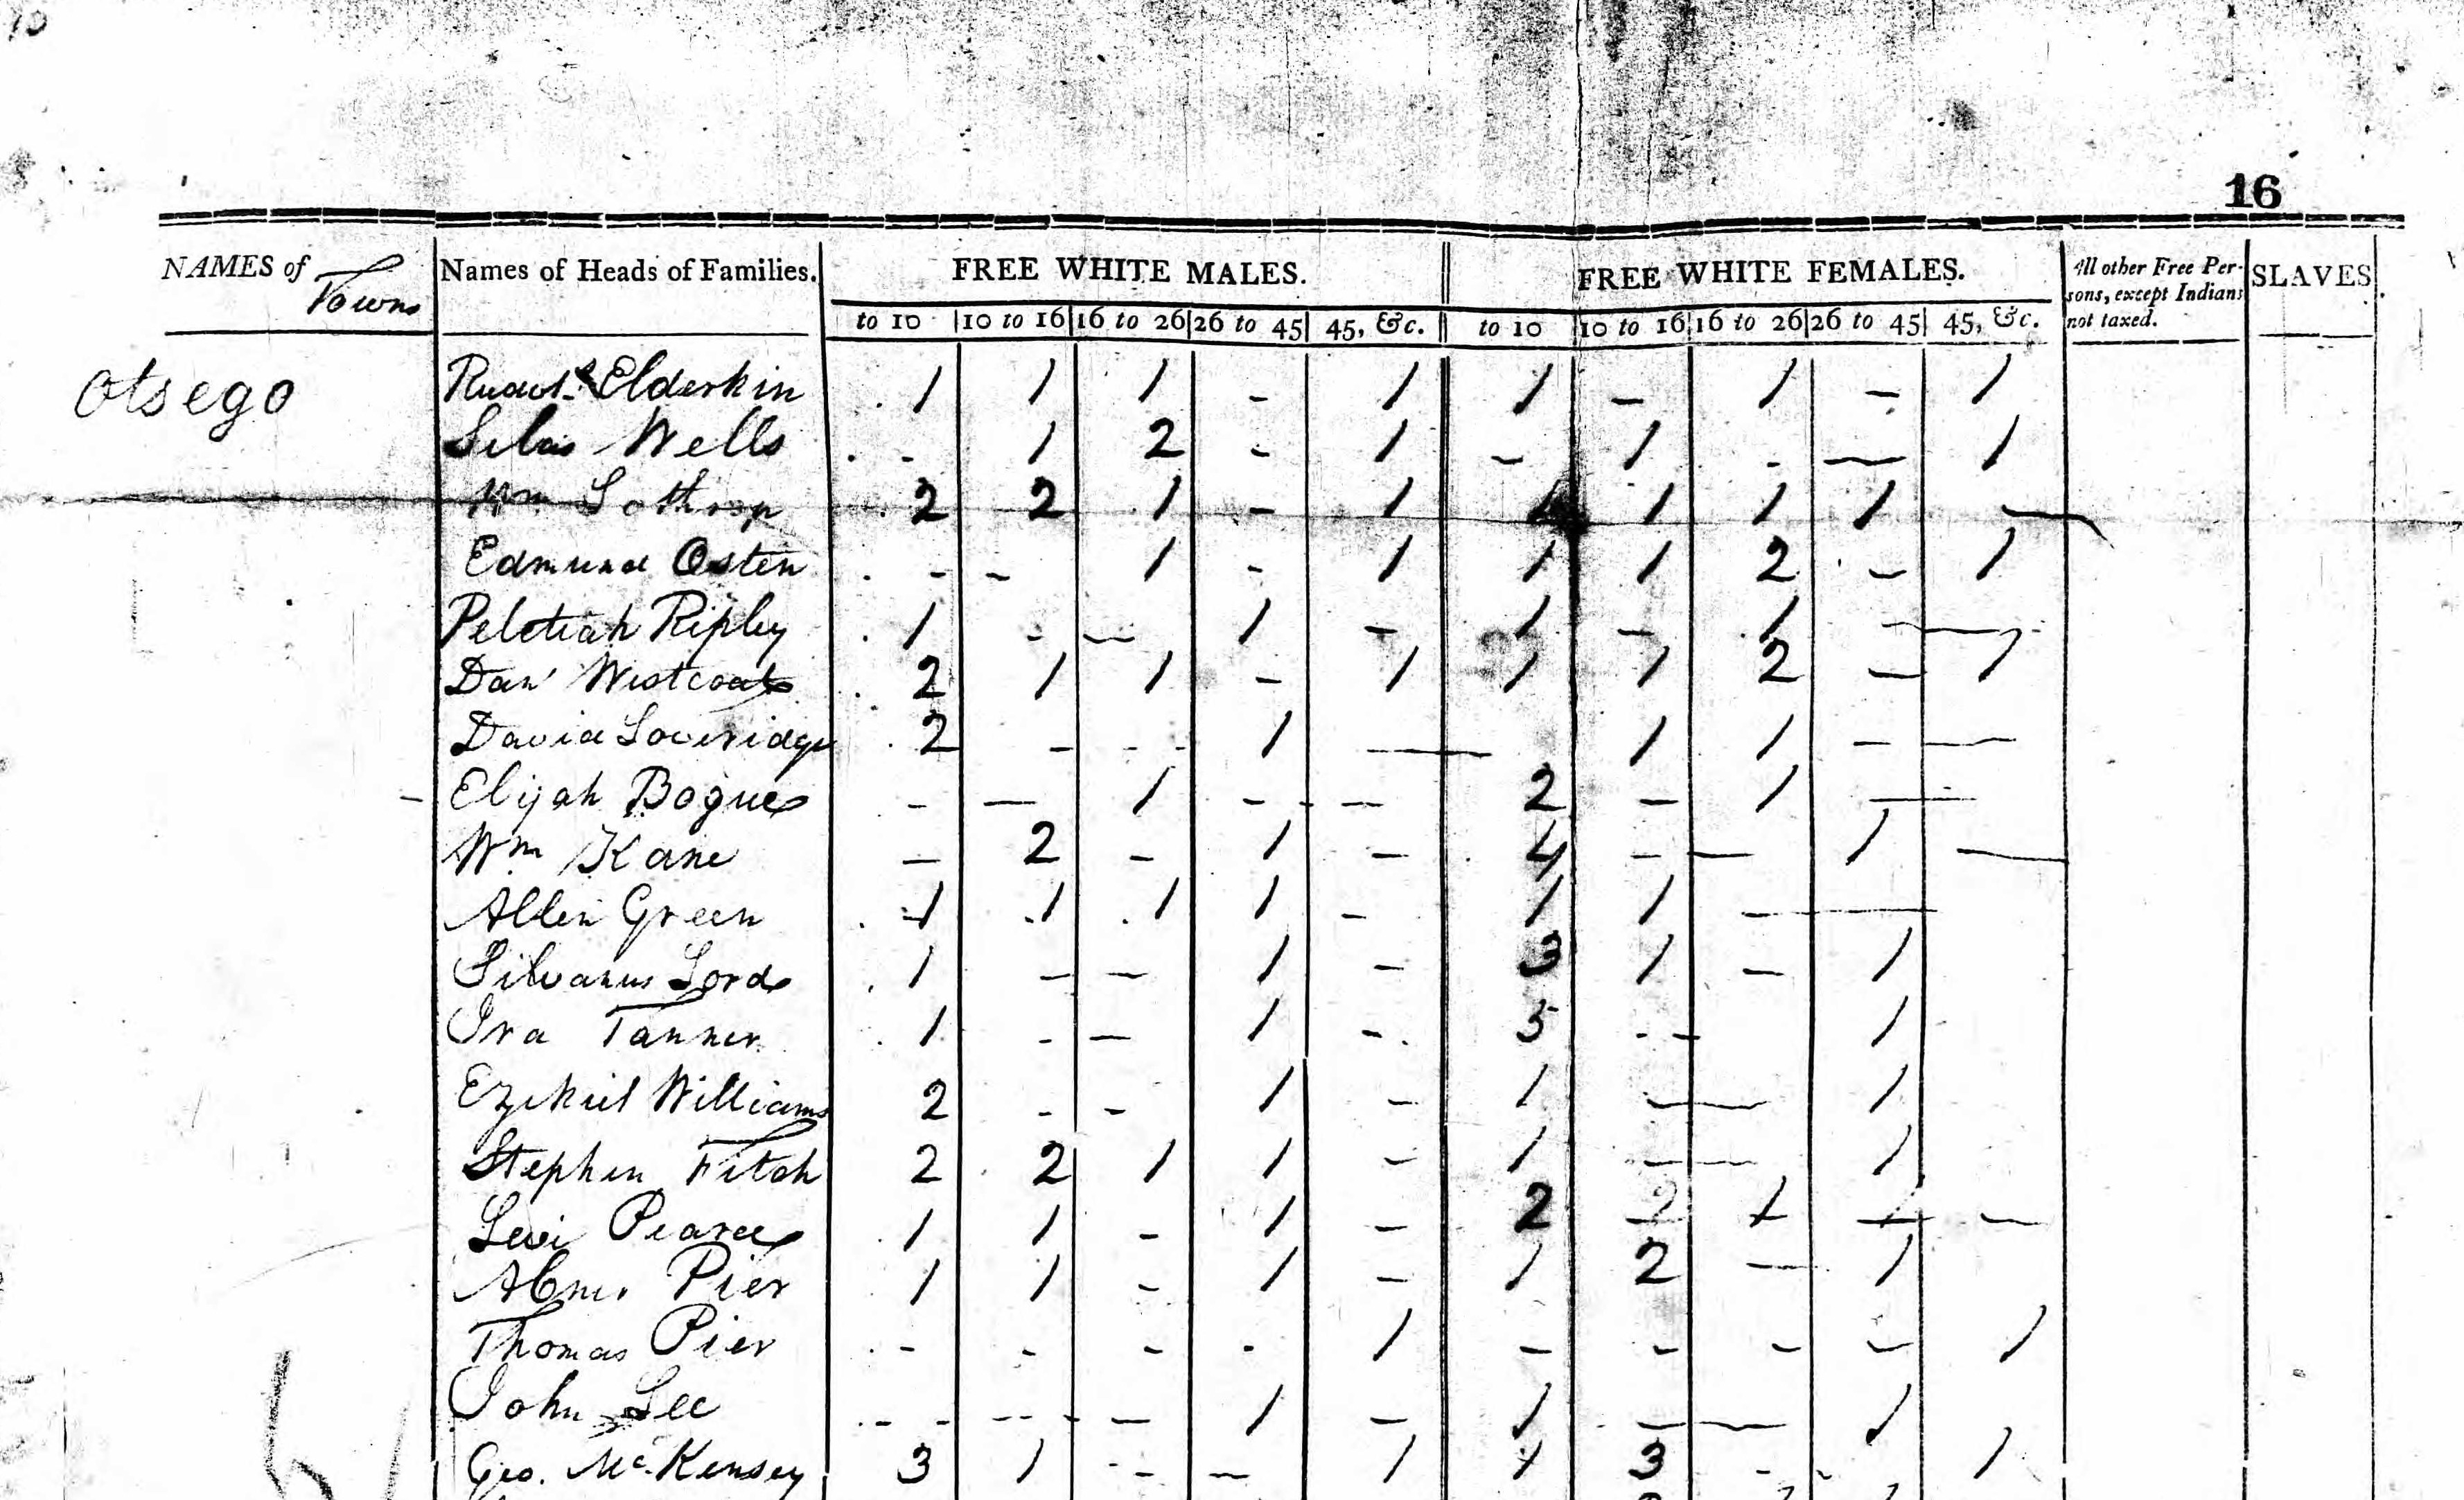 10
16
NAMES of Towns Names of Heads of Families. FREE WHITE MALES. FREE WHITE FEMALES. All other Free Persons, except Indians not taxed. SLAVES
to 10 10 to 16 16 to 26 26 to 45 45, &c. to 10 10 to 16 16 to 26 26 to 45 45, &c.
Otsego Elderkin 1 1 1 - 1 1 - 1 - 1
Silas Wells - 1 2 - 1 - 1 - - 1
Wm Lothrop 2 2 1 - 1 1 1 1 -
Edmund Osten - - 1 - 1 1 1 2 - 1
Peletiah Ripley 1 - - 1 - 1 - 1 -
Danl Westcoat 2 1 1 - 1 1 1 2 - 1
David Loveridge 2 - - 1 - 1 1 - -
Elijah Bogue - - 1 - - 2 - 1 -
Wm Kane - 2 - 1 - 4 - - 1 -
Allen Green 1 1 1 1 - 1 1 -
Silvanus Lord 1 - - 1 - 3 1 - 1
Ira Tanner 1 - - 1 - 5 - - 1
Ezekiel Williams 2 - - 1 - 1 - 1
Stephen Fitch 2 2 1 1 - 1 - 1
Levi Pearce 1 1 - 1 - 2 2 1 1 -
Abner Pier 1 1 - 1 - 1 2 - 1
Thomas Pier - - - - 1 - - - - 1
John Lee - - - 1 - 1 - - 1
Geo. McKensey 3 1 - - 1 1 3 - - 1